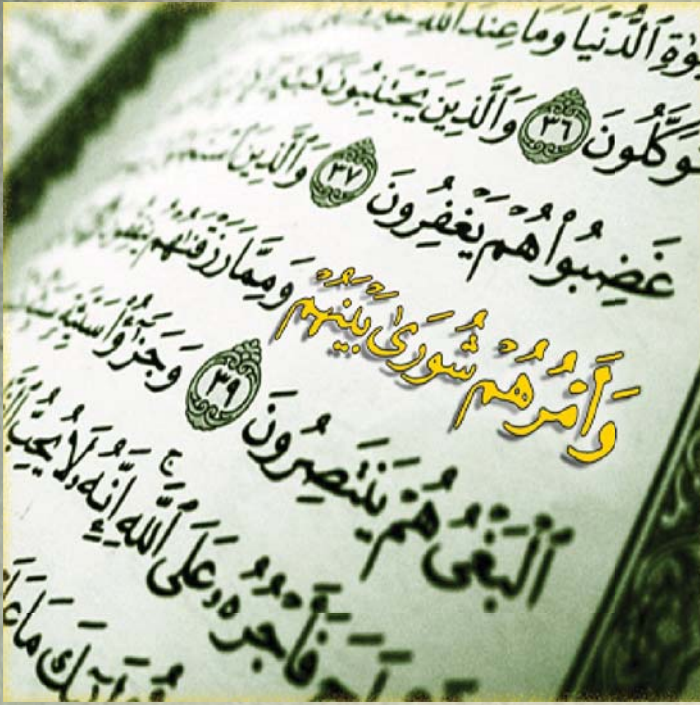 وَةِ ٱلدُّنْيَا وَمَا عِندَ ٱللَّهِ
وَكَّلُونَ ٣٦ وَٱلَّذِينَ يَجْتَنِبُونَ
غَضِبُوا۟ هُمْ يَغْفِرُونَ ٣٧ وَٱلَّذِينَ
وَأَمْرُهُمْ شُورَىٰ بَيْنَهُمْ وَمِمَّا رَزَقْنَٰهُمْ
ٱلْبَغْىُ هُمْ يَنتَصِرُونَ ٣٩ وَجَزَٰٓؤُا۟ سَيِّئَةٍ
فَأَجْرُهُۥ عَلَى ٱللَّهِ ۚ إِنَّهُۥ لَا يُحِبُّ
مَا عَلَ